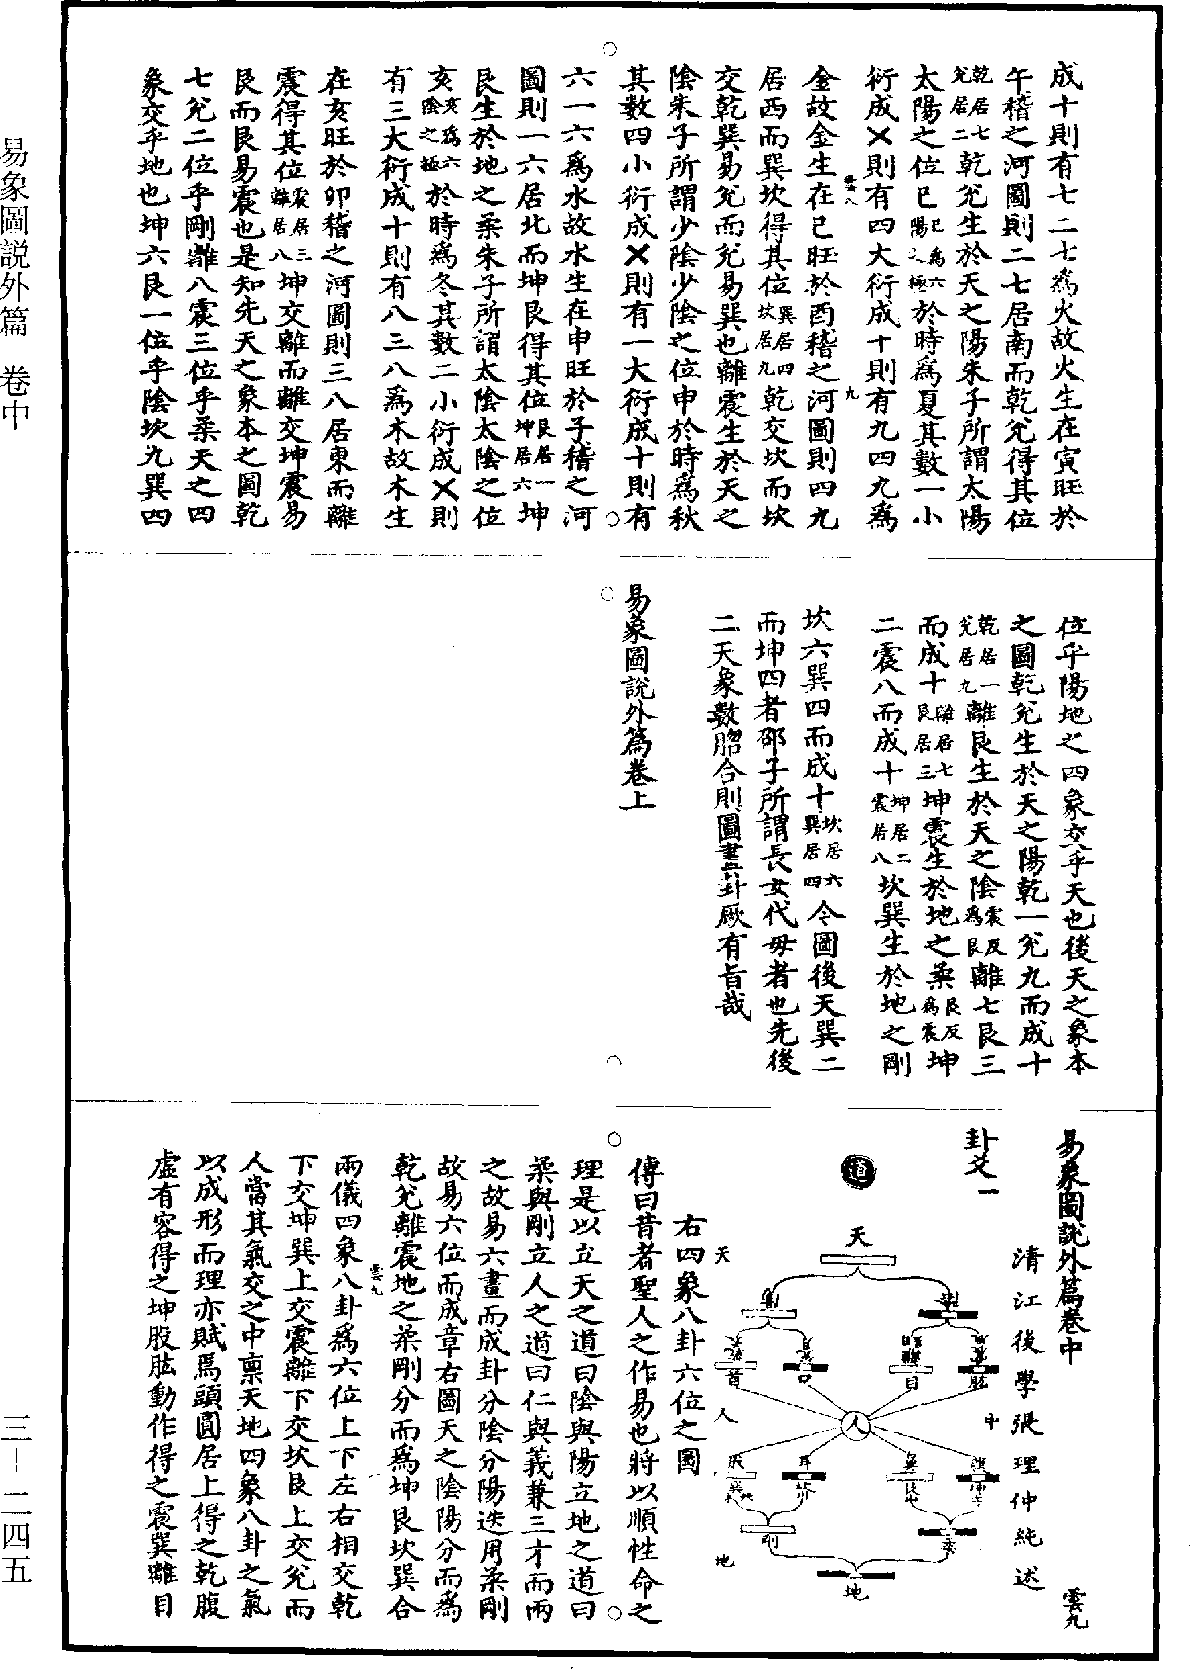 易象圖說外篇　卷中
三－二四五
成十則有七二七為火故火生在寅旺於
午稽之河圖則二七居南而乾兊得其位
乾居七兊居二乾兊生於天之陽朱子所謂太陽
太陽之位巳巳為六陽之極於時為夏其數一小
衍成㐅則有四大衍成十則有九四九為
金故金生在巳旺於酉稽之河圖則四九
居西而巽坎得其位巽居四坎居九乾交坎而坎
交乾巽易兊而兊易巽也離震生於天之
陰朱子所謂少陰少陰之位申於時為秋
其數四小衍成㐅則有一大衍成十則有
六一六為水故水生在申旺於子稽之河
圖則一六居北而坤艮得其位艮居一坤居六坤
艮生於地之柔朱子所謂太陰太陰之位
亥亥為六陰之極於時為冬其數二小衍成㐅則
有三大衍成十則有八三八為木故木生
在亥旺於卯稽之河圖則三八居東而離
震得其位震居三離居八坤交離而離交坤震易
艮而艮易震也是知先天之象本之圖乾
七兊二位乎剛離八震三位乎柔天之四
象交乎地也坤六艮一位乎陰坎九巽四
位乎陽地之四象交乎天也後天之象本
之圖乾兊生於天之陽乾一兊九而成十
乾居一兊居九離艮生於天之陰震反為艮離七艮三
而成十離居七艮居三坤震生於地之柔艮反為震坤
二震八而成十坤居二震居八坎巽生於地之剛
坎六巽四而成十坎居六巽居四令圖後天巽二
而坤四者邵子所謂長女代母者也先後
二天象數脗合則圖書卦厥有旨哉
易象圖說外篇卷上
易象圖說外篇卷中
雲九
清江後學張理仲純述
卦爻一
道
天
陽
陰
天
首
口
目
人
人
中
耳
剛
柔
地
地
右四象八卦六位之圖
傳曰昔者聖人之作易也將以順性命之
理是以立天之道曰陰與陽立地之道曰
柔與剛立人之道曰仁與義兼三才而兩
之故易六畫而成卦分陰分陽迭用柔剛
故易六位而成章右圖天之陰陽分而為
乾兊離震地之柔剛分而為坤艮坎巽合
兩儀四象八卦為六位上下左右相交乾
下交坤巽上交震離下交坎艮上交兊而
人當其氣交之中稟天地四象八卦之氣
以成形而理亦賦焉頭圓居上得之乾腹
虛有容得之坤股肱動作得之震巽離目